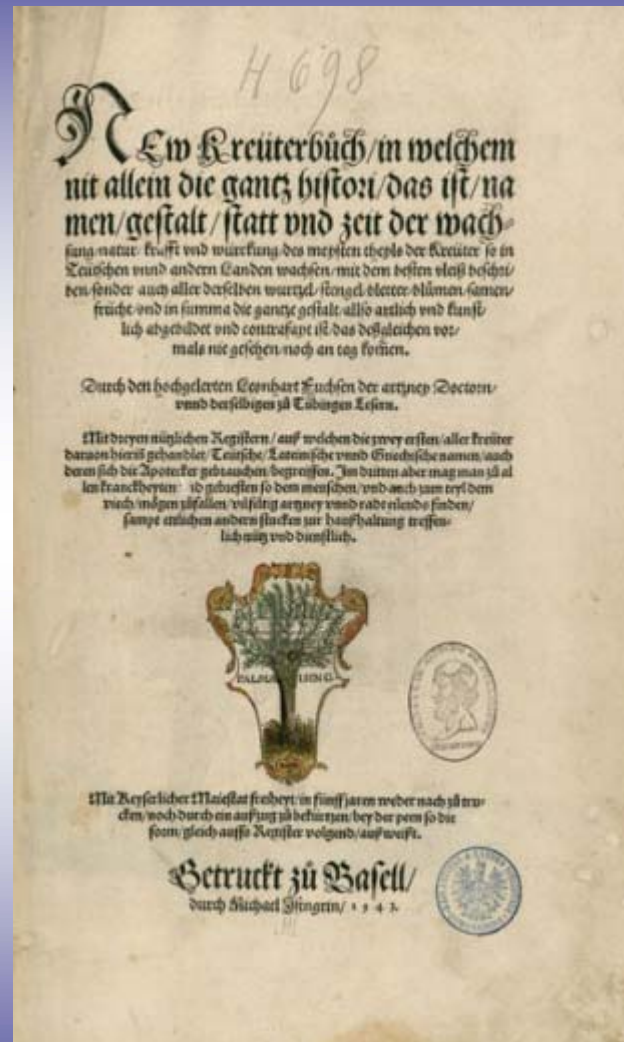 H 698
New Kreüterbůch/in welchem
nit allein die gantz histori/das ist/na
men/gestalt/statt vnd zeit der wach-
sung/natur/krafft vnd würckung/des meysten theyls der Kreüter so in
Teütschen vnnd andern Landen wachsen/mit dem besten vleiß beschri
ben/sonder auch aller derselben wurtzel/stengel/bletter/blůmen/samen/
frücht/vnd in summa die gantze gestalt/allso artlich vnd kunst
lich abgebildet vnd contrafayt ist/das deßgleichen vor-
mals nie gesehen/noch an tag kom̃en.
Durch den hochgelerten Leonhart Fuchsen der artzney Doctorn/
vnnd derselbigen zů Tübingen Lesern.
Mit dreyen nützlichen Registern/auß welchen die zwey ersten/aller kreüter
daruon hierin gehandlet/Teütsche/Lateinische vnnd Griechische namen/auch
deren sich die Apotecker gebrauchen/begreiffen. Im dritten aber mag man zů al
len kranckheyten gebresten so dem menschen/vnd auch zum teyl dem
viech/mögen zůfallen/vilfältig artzney vnnd radt eilends finden/
sampt ettlichen andern stucken zur haußhaltung treffen-
lich nütz vnd dienstlich.
PALMA ISING.
Mit Keyserlicher Maiestat freiheyt/in fünff jaren weder nach zů tru-
cken/noch durch ein außzug zů bekürtzen/bey der peen so die
form/gleich auffs Register volgend/außweißt.
Getruckt zů Basell/
durch Michael Isingrin/1543.